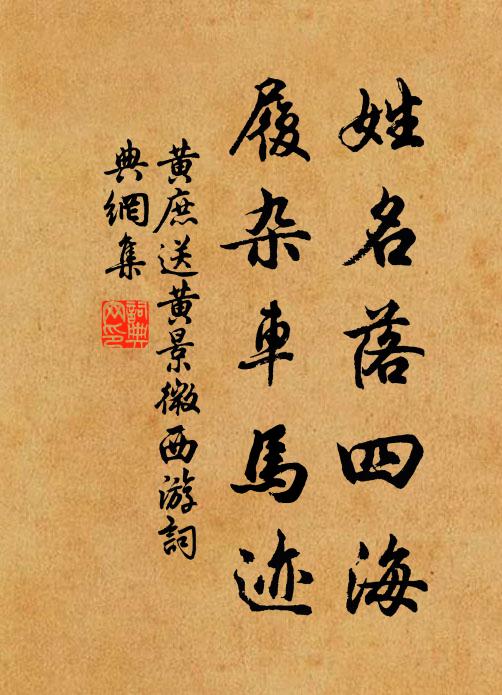 姓名落四海
履杂車馬迹
黄庶送黄景微西游詞
典網集
詞典
网印